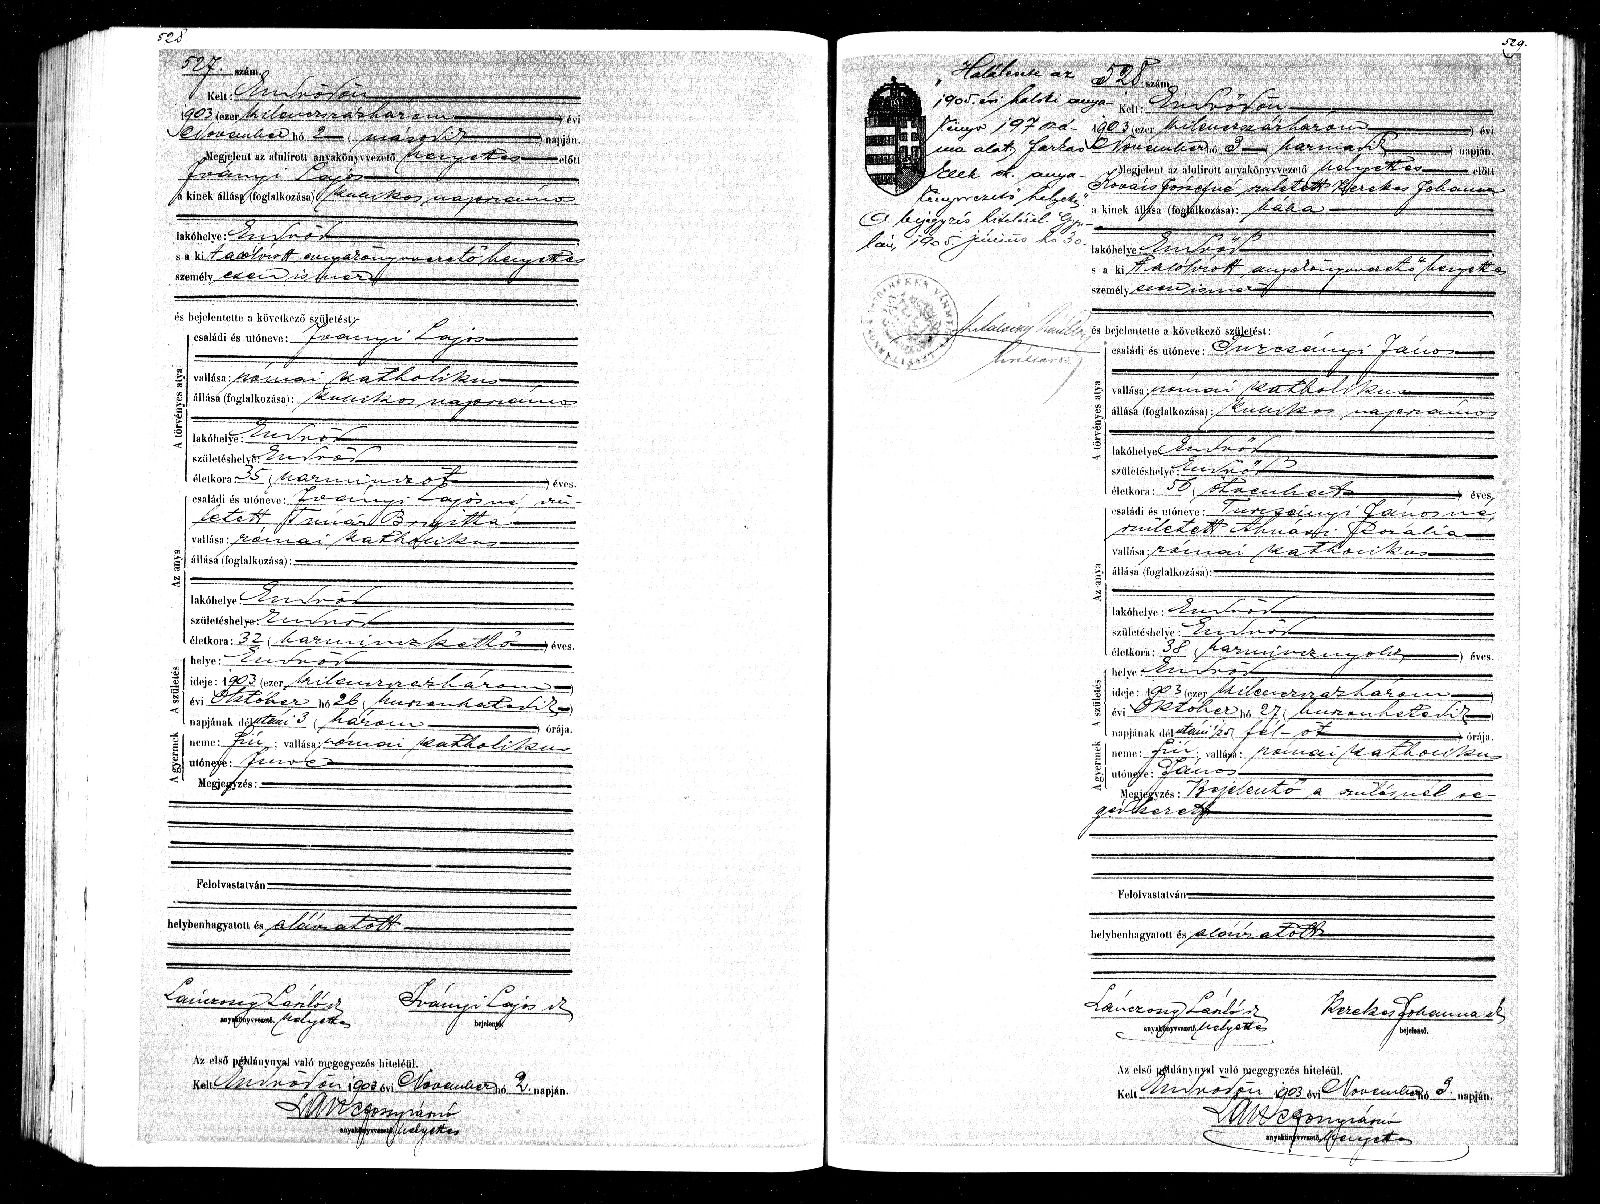 528
527. szám
Kelt: Endrődön
1903 (ezer kilenczszázhárom) évi
November hó 2 (második) napján.
Megjelent az alulirott anyakönyvvezető helyettes előtt
Iványi Lajos
a kinek állása (foglalkozása) kubikos napszámos
lakóhelye: Endrőd
s a kit alólirott anyakönyvvezető helyettes
személyesen ismer
és bejelentette a következő születést:
A törvényes atya
családi és utóneve: Iványi Lajos
vallása: római katholikus
állása (foglalkozása): kubikos napszámos
lakóhelye: Endrőd
születéshelye: Endrőd
életkora: 35 (harminczöt) éves.
Az anya
családi és utóneve: Iványi Lajosné, szü-
letett Tímár Brigitta
vallása: római katholikus
állása (foglalkozása):
lakóhelye: Endrőd
születéshelye: Endrőd
életkora: 32 (harminczkettő) éves.
A születés
helye: Endrőd
ideje: 1903 (ezer kilenczszázhárom)
évi Október hó 26 (huszonhatodik)
napjának délutáni 3 (három) órája.
A gyermek
neme: fiú; vallása: római katholikus
utóneve: Imre
Megjegyzés:
Felolvastatván
helybenhagyatott és aláíratott
Lánczong László sk
anyakönyvvezető helyettes
Iványi Lajos sk
bejelentő.
Az első példánynyal való megegyezés hiteléül.
Kelt Endrődön 1903 évi November hó 2. napján.
anyakönyvvezető helyettes
529.
Halálesete az
1905. évi halotti anya-
könyv 197 szá-
ma alatt,
anya-
könyvvezető helyett
bejegyzés hiteléül Gyu-
lán, 1905 június hó 30.
528 szám
Kelt: Endrődön
1903 (ezer kilenczszázhárom) évi
November hó 3 (harmadik) napján.
Megjelent az alulirott anyakönyvvezető helyettes előtt
Kovács Józsefné született Kerekes Johanna
a kinek állása (foglalkozása): bába
lakóhelye: Endrőd
s a kit alólirott anyakönyvvezető helyettes
személyesen ismer
és bejelentette a következő születést:
A törvényes atya
családi és utóneve: Turcsányi János
vallása: római katholikus
állása (foglalkozása): kubikos napszámos
lakóhelye: Endrőd
születéshelye: Endrőd
életkora: 56 (ötvenhat) éves.
Az anya
családi és utóneve: Turcsányi Jánosné,
született Rozália
vallása: római katholikus
állása (foglalkozása):
lakóhelye: Endrőd
születéshelye: Endrőd
életkora: 38 (harmincznyolcz) éves.
A születés
helye: Endrőd
ideje: 1903 (ezer kilenczszázhárom)
évi Október hó 27 (huszonhetedik)
napjának délutáni ½5 fél-öt órája.
A gyermek
neme: fiú; vallása: római katholikus
utóneve: János
Megjegyzés: Bejelentő a szülésnél se-
gédkezett
Felolvastatván
helybenhagyatott és aláíratott
Lánczong László sk
anyakönyvvezető helyettes
Kerekes Johanna sk
bejelentő.
Az első példánynyal való megegyezés hiteléül.
Kelt Endrődön 1903 évi November hó 3. napján.
anyakönyvvezető helyettes